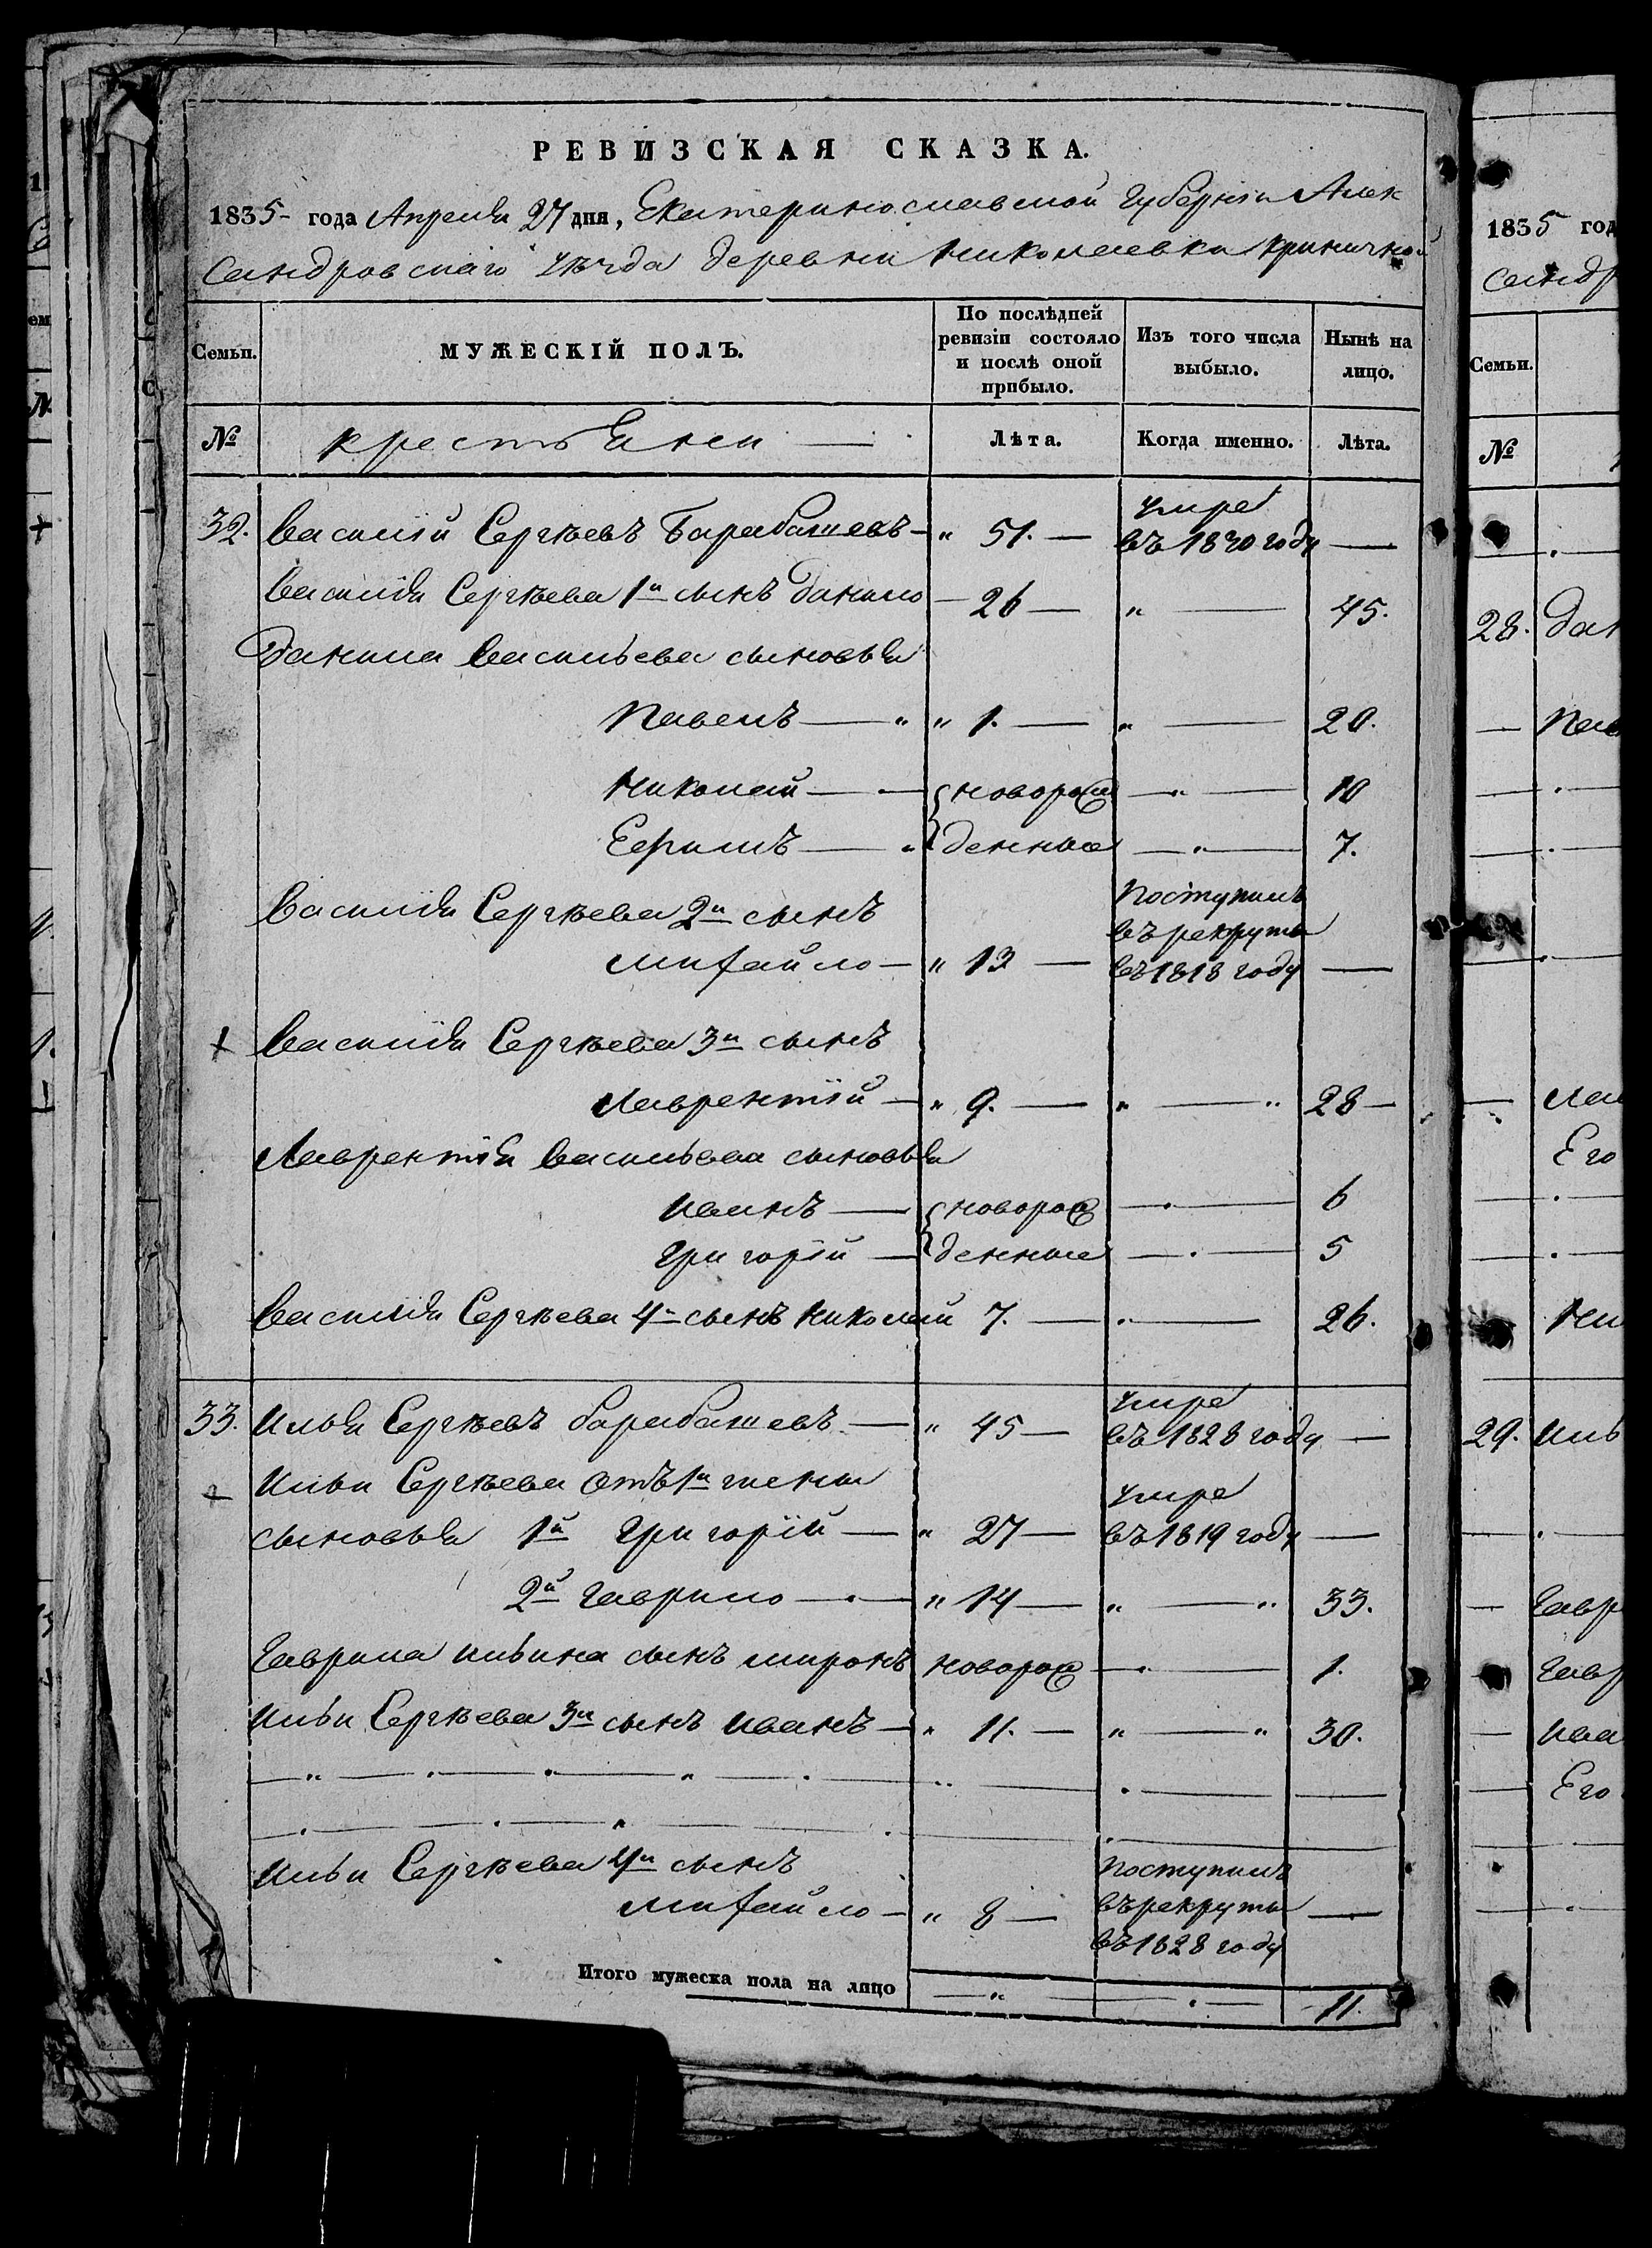 РЕВИЗСКАЯ СКАЗКА.
1835 года Апреля 27 дня, Екатеринославской Губернии Алек
сандровскаго уѣзда деревни Николаевки Криничной
Семьи. МУЖЕСКІЙ ПОЛЪ. По послѣдней ревизіи состояло и послѣ оной прибыло. Изъ того числа выбыло. Нынѣ на лицо.
№ крестьяни Лѣта. Когда именно. Лѣта.
32. Василій Сергѣевъ Барабашевъ — " 51. — умре въ 1830 году —
Василія Сергѣева 1й сынъ Данило — 26 — " — 45.
Данила Васильева сыновья
Павелъ — " " 1. — " — 20.
Николай — новорож — " — 10
Ефимъ — " денные — " — 7.
Василія Сергѣева 2й сынъ Поступилъ
въ рекруты
Михайло — " 13 — въ 1818 году —
+ Василія Сергѣева 3й сынъ
Лаврентій — " 9. — " — " 28 —
Лаврентія Васильева сыновья
Иванъ — новорож — " — 6
Григорій — денные — " — 5
Василія Сергѣева 4й сынъ Николай 7. — " — 26.
33. Илья Сергѣевъ Барабашевъ — " 45 — умре въ 1828 году —
Ильи Сергѣева отъ 1й жены умре
сыновья 1й Григорій — " 27 — въ 1819 году —
2й Гаврило — " 14 — " — " 33.
Гаврила Ильина сынъ Миронъ новорож — " — 1.
Ильи Сергѣева 3й сынъ Иванъ — " 11. — " — " 30.
Ильи Сергѣева 4й сынъ Поступилъ
Михайло — " 8 — въ рекруты —
въ 1828 году
Итого мужеска пола на лицо — " — " — 11.
1835 год
сандр
Семьи.
№
28. Дан
Пав
Лав
Его
Ни
29. Иль
Гавр
Гавр
Ива
Его